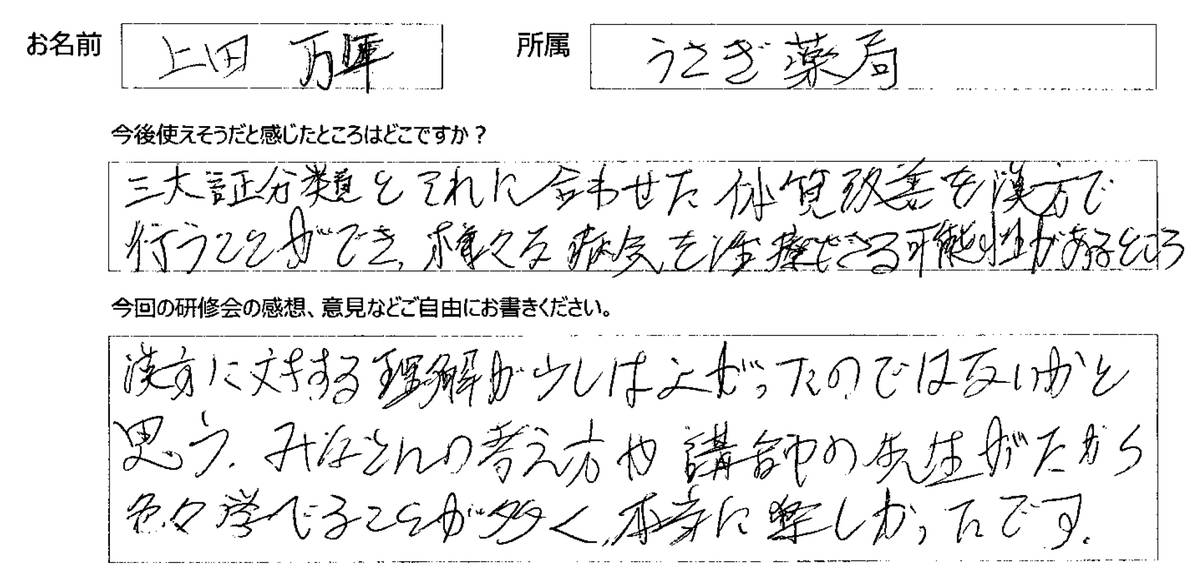 お名前 上田 万
所属 うさぎ薬局
今後使えそうだと感じたところはどこですか？
三大証分類とそれに合わせた体質改善を漢方で
行うことができ、様々な病気を治療できる可能性があるところ
今回の研修会の感想、意見などご自由にお書きください。
漢方に対する理解が少しは上がったのではないかと
思う。みなさんの考え方や講師の先生がたから
色々学べることが多く、本当に楽しかったです。